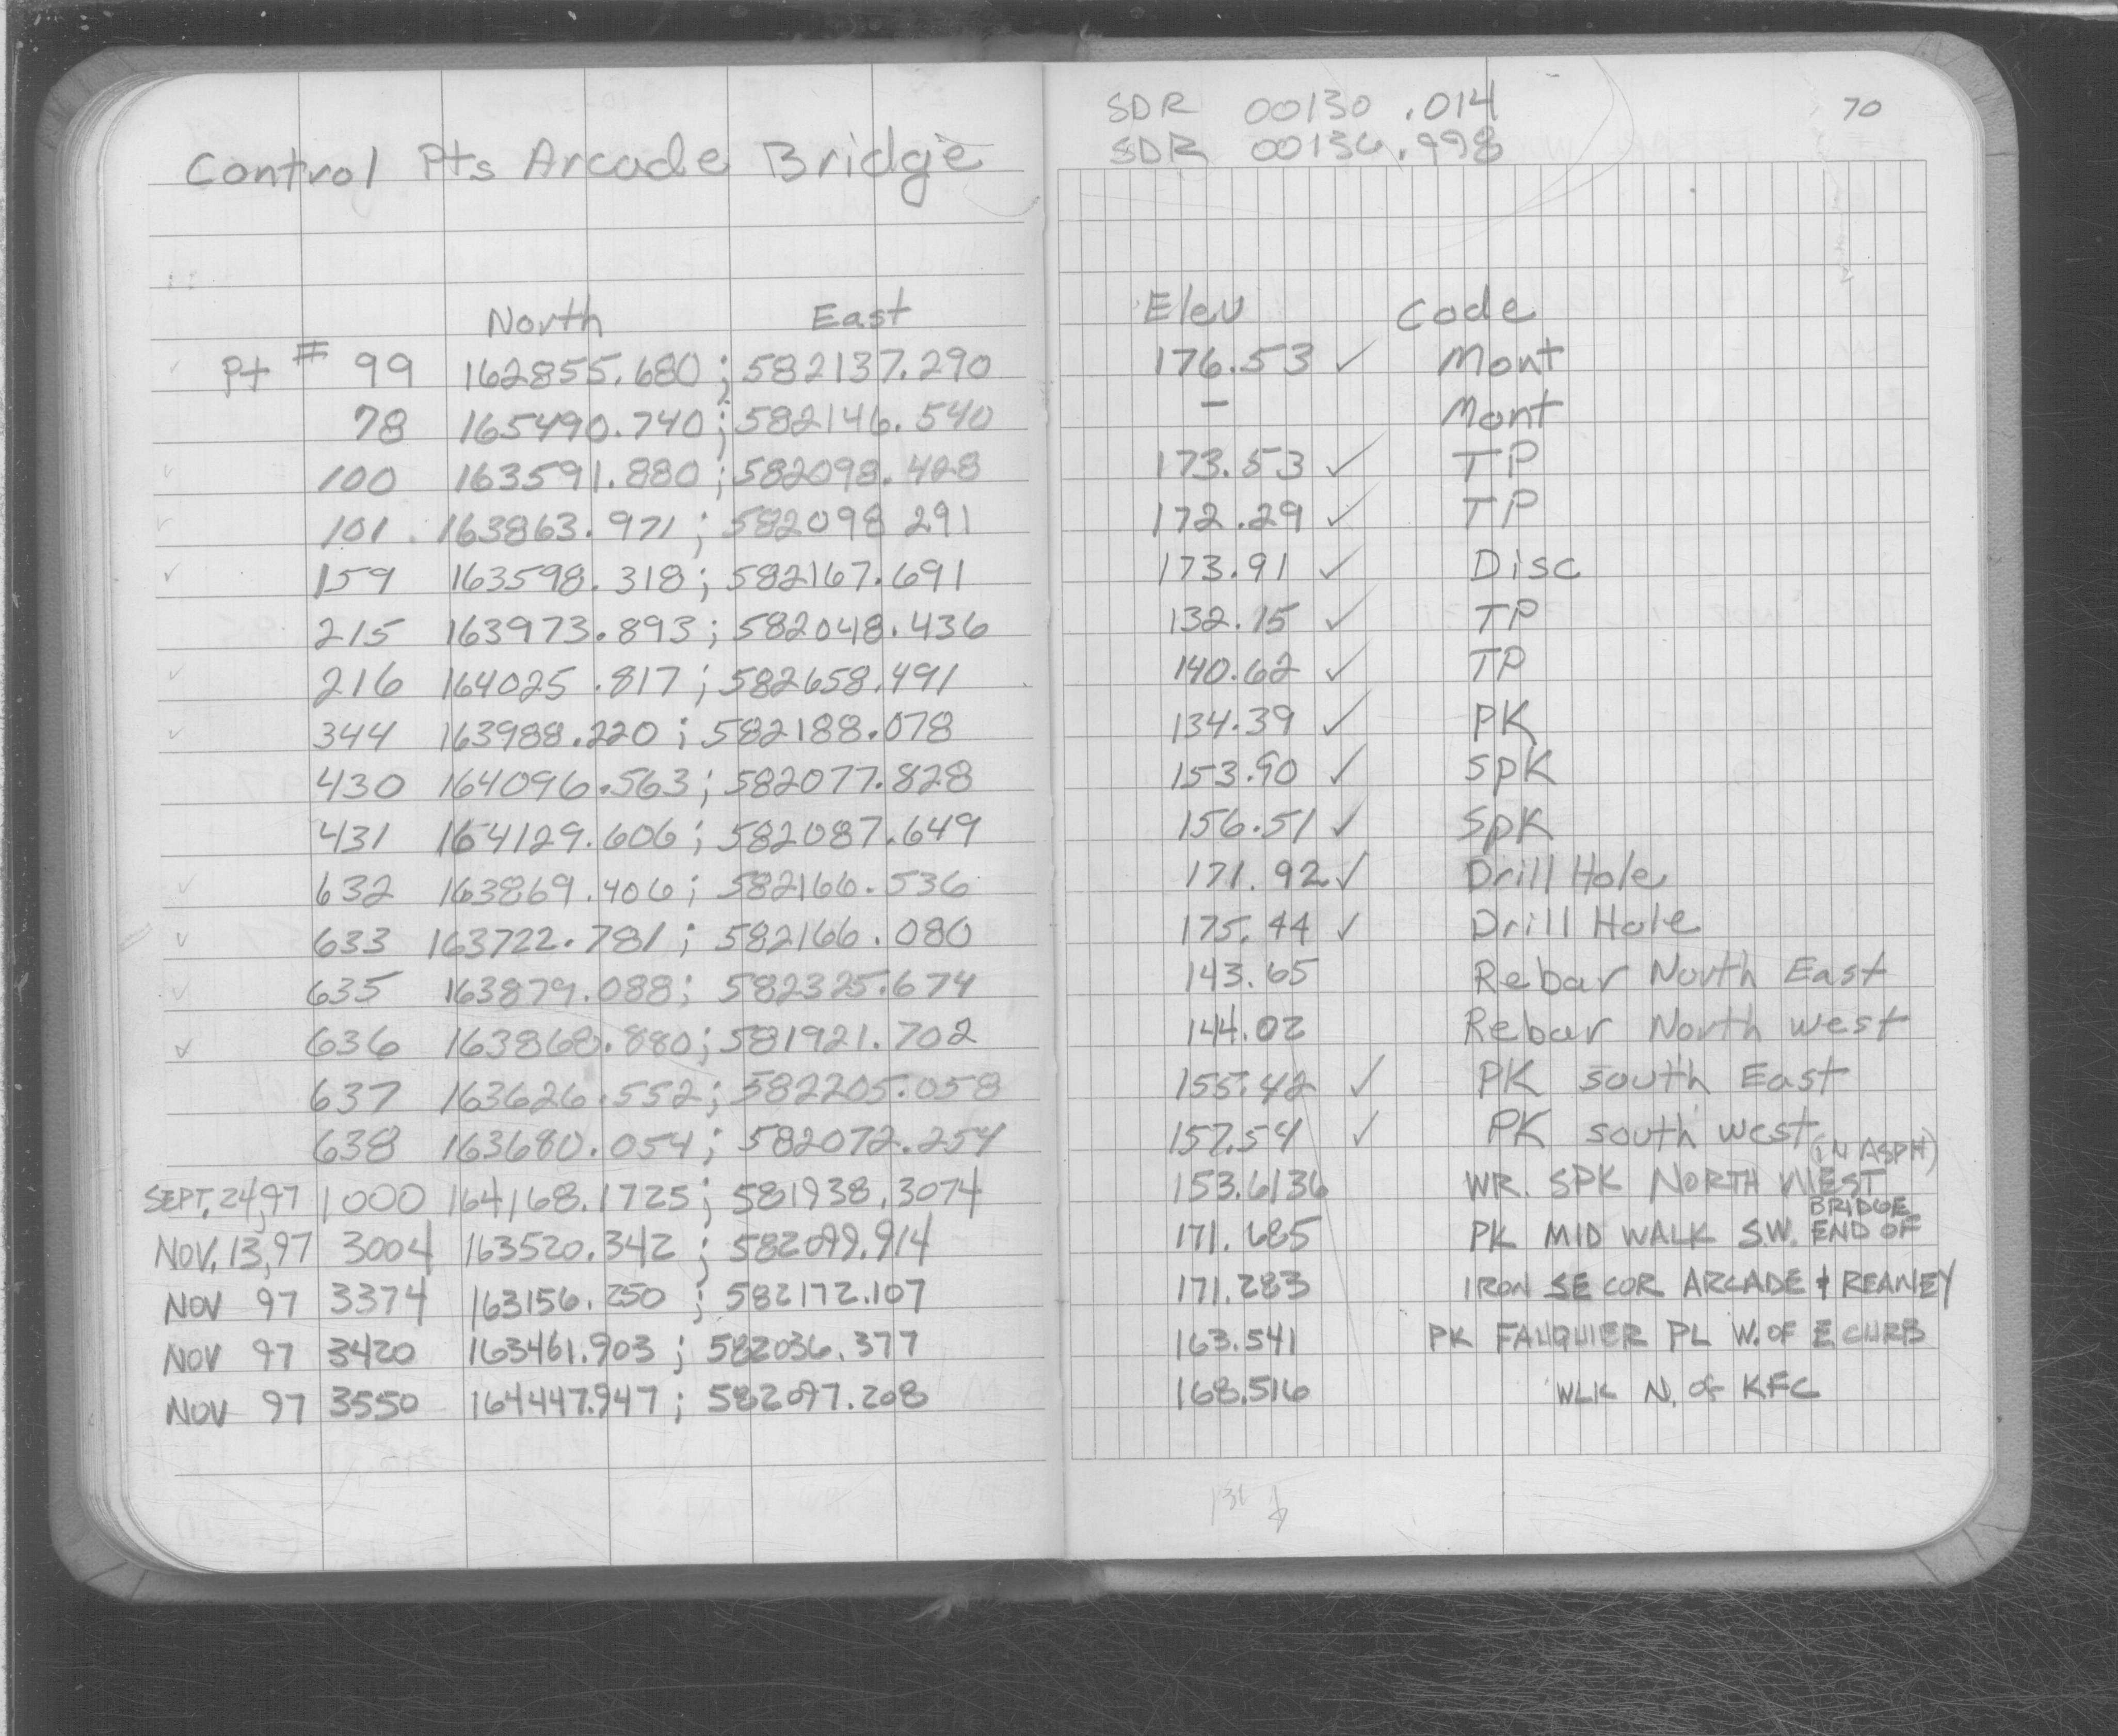 Control Pts Arcade Bridge
North East
Pt # 99 162855.680 ; 582137.290
78 165490.740 ; 582146.540
100 163591.880 ; 582098.428
101 163863.971 ; 582098 291
159 163598.318 ; 582167.691
215 163973.893 ; 582048.436
216 164025.817 ; 582658.491
344 163988.220 ; 582188.078
430 164096.563 ; 582077.828
431 164129.606 ; 582087.649
632 163869.406 ; 582166.536
633 163722.781 ; 582166.080
635 163879.088 ; 582325.674
636 163868.880 ; 581921.702
637 163626.552 ; 582205.058
638 163680.054 ; 582072.254
SEPT, 24, 97 1000 164168.1725 ; 581938.3074
NOV, 13, 97 3004 163520.342 ; 582099.914
NOV 97 3374 163156.250 ; 582172.107
NOV 97 3420 163461.903 ; 582036.377
NOV 97 3550 164447.947 ; 582097.208
SDR 00130 .014
SDR 00136.998
70
Elev Code
176.53 ✓ Mont
– Mont
173.53 ✓ TP
172.29 ✓ TP
173.91 ✓ Disc
132.15 ✓ TP
140.62 ✓ TP
134.39 ✓ PK
153.90 ✓ SpK
156.51 ✓ SpK
171.92 ✓ Drill Hole
175.44 ✓ Drill Hole
143.65 Rebar North East
144.02 Rebar North west
155.42 ✓ PK south East
157.54 ✓ PK south west
(IN ASPH)
153.6136 WR. SPK NORTH WEST
BRIDGE
171.685 PK MID WALK S.W. END OF
171.283 IRON SE COR ARCADE + REANEY
163.541 PK FAUQUIER PL W. OF E CURB
168.516 WLK N. of KFC